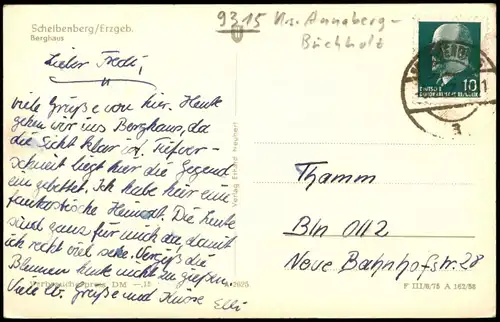 Scheibenberg/Erzgeb.
Berghaus
9315 Kr. Annaberg-
Buchholz
Lieber Fredi,
viele Grüße von hier. Heute
gehen wir ins Berghaus, da
die Sicht klar ist. Tiefver-
schneit liegt hier die Gegend
eingebettet. Ich habe hier eine
fantastische Heimat. Die Leute
sind ganz für mich da, damit
ich recht viel sehe. Vergiß die
Blumen heute nicht zu gießen.
Viele lb. Grüße und Küsse Elli
Verlag Erhard Neubert
10
Thamm
Bln 0112
Neue Bahnhofstr. 28
Verbraucherpreis DM —,15
A 2625
F III/8/75 A 162/56